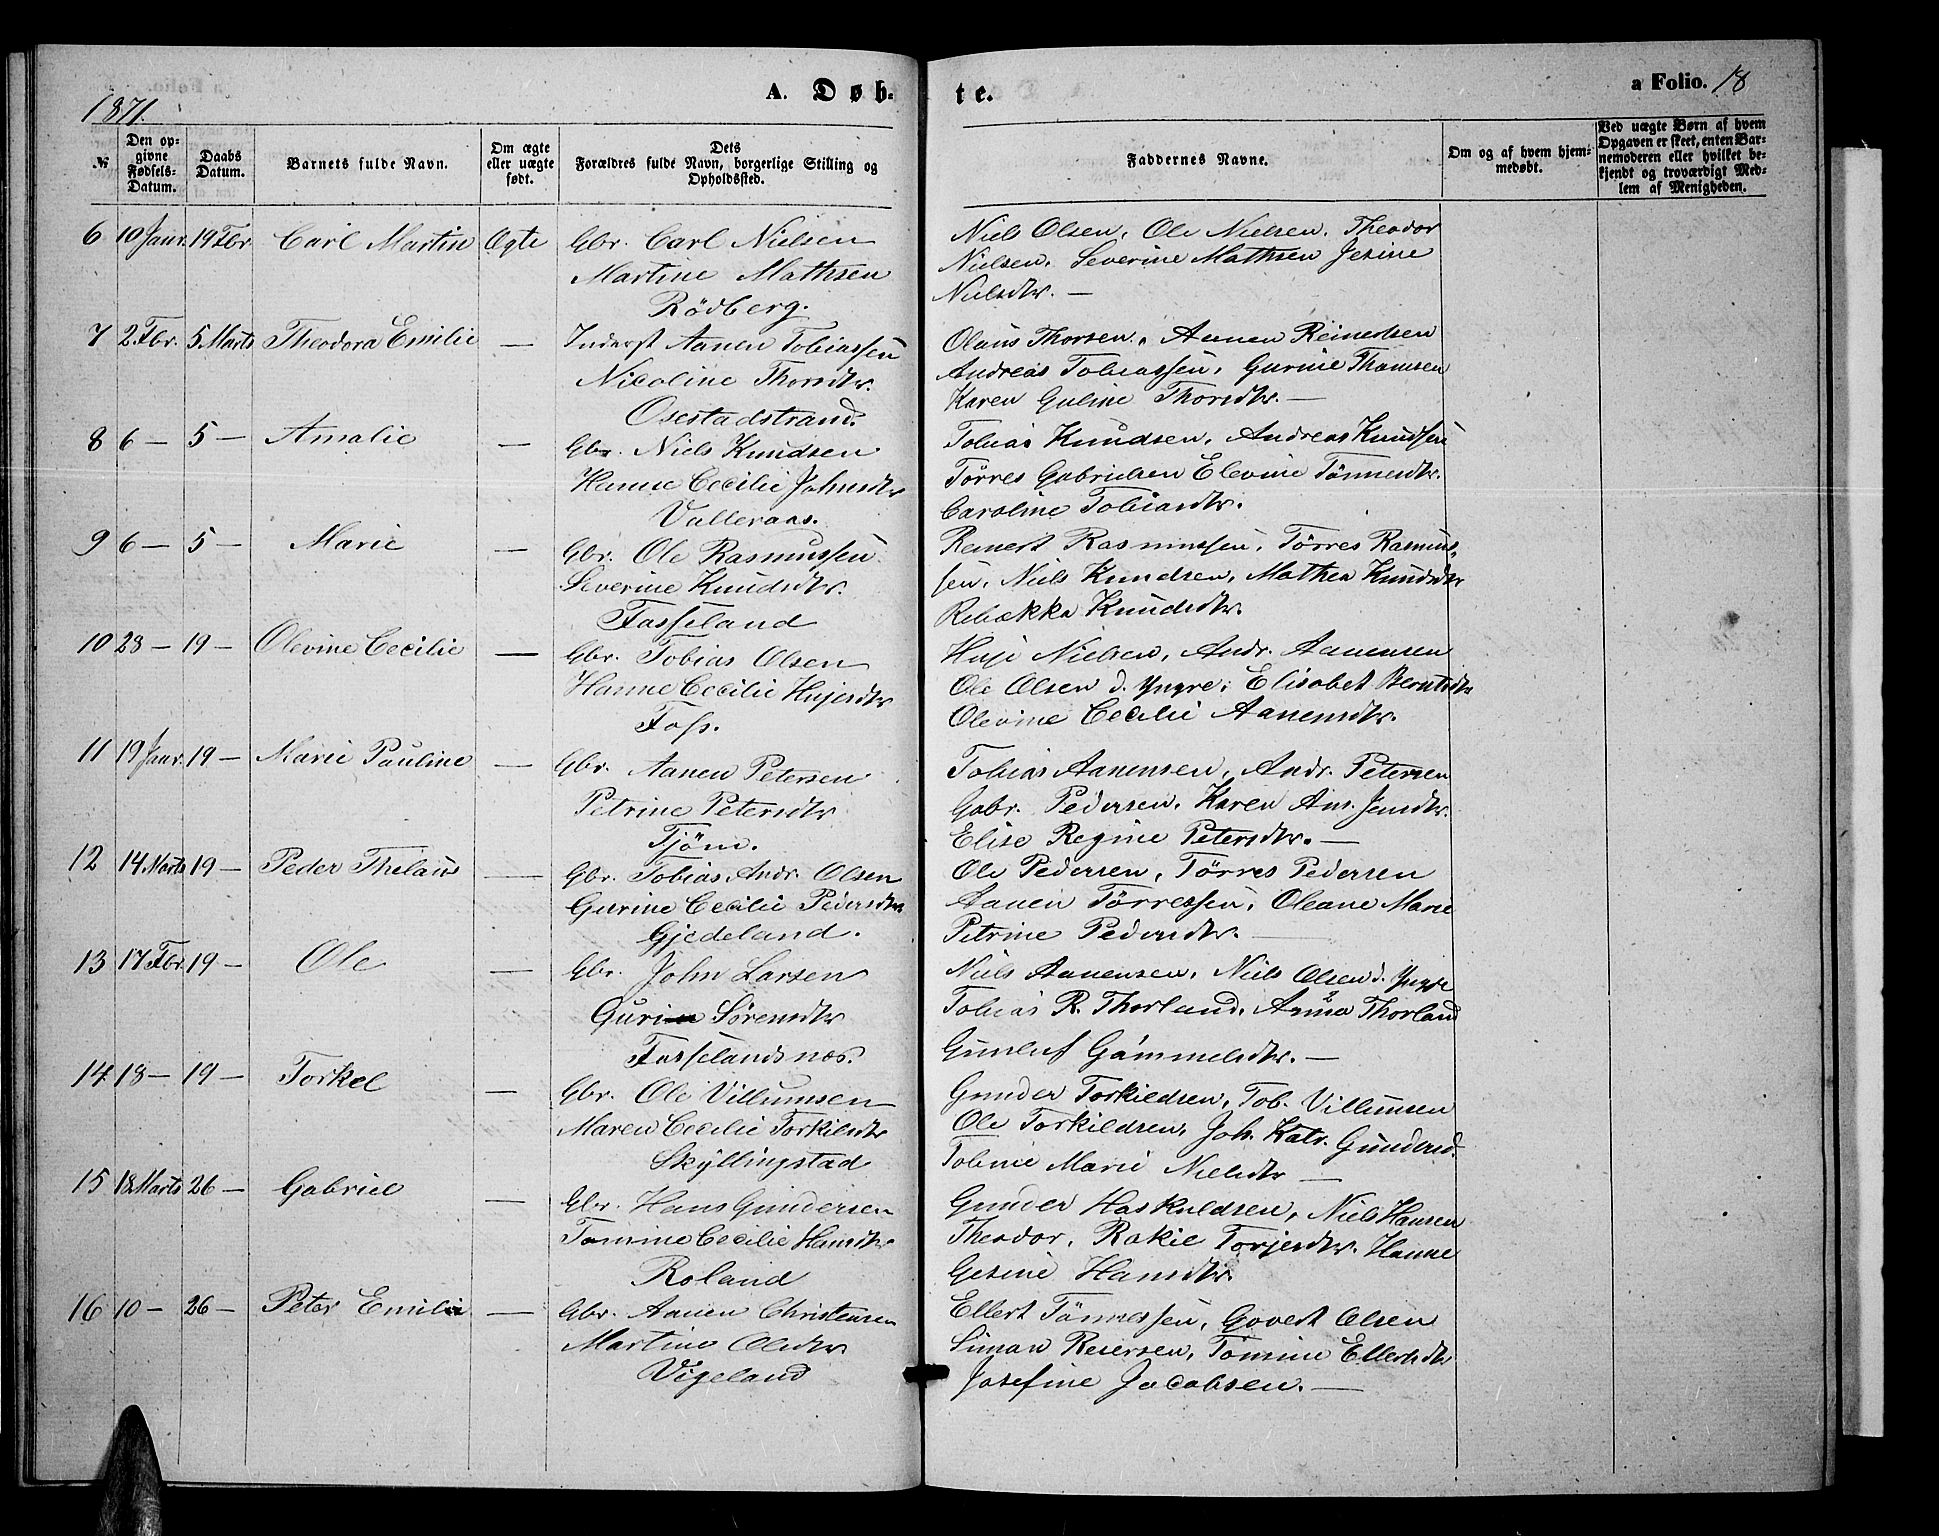 1871.
A. Døb-
te.
a Folio. 18
№
Den op-
givne
Fødsels-
Datum.
Daabs
Datum.
Barnets fulde Navn.
Om ægte
eller uægte
født.
Dets
Forældres fulde Navn, borgerlige Stilling og
Opholdssted.
Faddernes Navne.
Om og af hvem hjem-
medøbt.
Ved uægte Børn af hvem
Opgaven er skeet, enten Bar-
nemoderen eller hvilket be-
kjendt og troværdigt Med-
lem af Menigheden.
6 10 Janr. 19 Fbr. Carl Martin Ægte Gbr. Carl Nielsen
Martine Mathsen
Rödberg.
Niels Olsen, Ole Nielsen, Theodor
Nielsen, Severine Mathsen Jesine
Nielsdtr. —
7 2. Fbr. 5 Marts Theodora Emilie — Inderst Aanen Tobiassen
Nicoline Thorsdtr.
Osestadstrand.
Olaus Thorsen, Aanen Reinertsen
Andreas Tobiassen, Gurine Thomsen
Karen Guline Thorsdtr. —
8 6 — 5 — Amalie — Gbr. Niels Knudsen
Hanne Cecilie Johnsdtr
Valleraas.
Tobias Knudsen, Andreas Knudsen
Tørres Gabrielsen Elevine Tønnesdtr.
Caroline Tobiasdtr.
9 6 — 5 — Marie — Gbr. Ole Rasmussen
Severine Knudsdtr.
Fasseland
Reinert Rasmussen, Tørres Rasmus-
sen, Niels Knudsen, Mathea Knudsdtr
Rebekka Knudsdtr.
10 28 — 19 — Olevine Cecilie — Gbr. Tobias Olsen
Hanne Cecilie Hujesdtr
Foss.
Huje Nielsen, Andr. Aanensen
Ole Olsen d. Yngre, Elisabet Berntsdtr
Olevine Cecilie Aanensdtr.
11 19 Janr. 19 — Marie Pauline — Gbr. Aanen Petersen
Petrine Petersdtr
Tjöm.
Tobias Aanensen, Andr. Petersen
Gabr. Pedersen, Karen An. Jensdtr.
Elise Regine Petersdtr. —
12 14 Marts 19 — Peder — Gbr. Tobias Andr. Olsen
Gurine Cecilie Pedersdtr
Gjedeland.
Ole Pedersen, Tørres Pedersen
Aanen Tørressen, Oleane Marie
Petrine Pedersdtr. —
13 17 Fbr. 19 — Ole — Gbr. John Larsen
Guri Sørensdtr
Fasselandsnæs.
Niels Aanensen, Niels Olsen d. Yngre
Tobias R. Thorland, Anna Thorland
Gunluf Gammelsdtr. —
14 18 — 19 — Torkel — Gbr. Ole Villumsen
Maren Cecilie Torkilsdtr
Skyllingstad
Gunder Torkildsen, Tob. Villumsen
Ole Torkildsen, Joh. Katr. Gundersd.
Tobine Marie Nielsdtr —
15 18 Marts 26 — Gabriel — Gbr. Hans Gundersen
Tomine Cecilie Hansdtr
Roland
Gunder Haskuldsen, Niels Hansen
Theodor, Rakie Torjersdtr. Hanne
Gesine Hansdtr.
16 10 — 26 — Peter Emil — Gbr. Aanen Christensen
Martine Olsdtr.
Vigeland
Ellert Tönnessen, Govert Olsen
Simon Reiersen, Tomine Ellertsdtr
Josefine Jacobsen. —